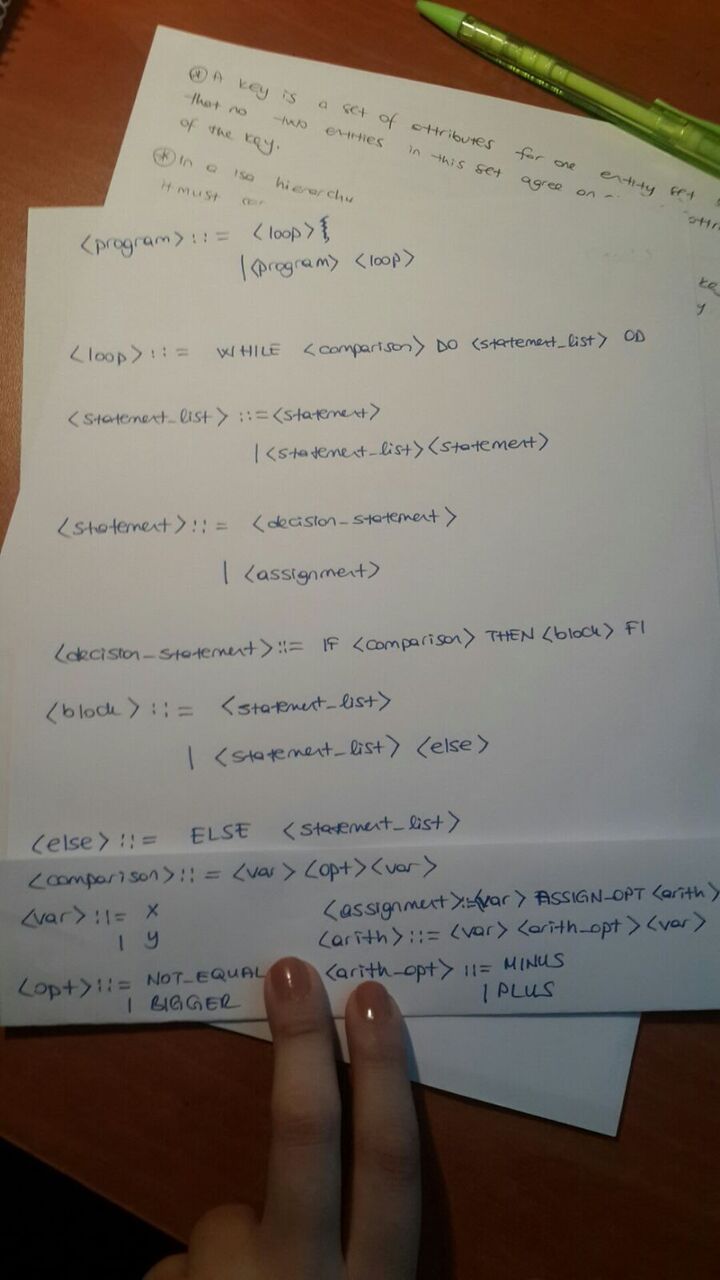 * A key is a set of attributes for one entity set
that no two entities in this set agree on
of the key.
* In a isa hierarchy
it must
key
y
<program>::= <loop>
|<program> <loop>
<loop>::= WHILE <comparison> DO <statement_list> OD
<statement_list> ::=<statement>
|<statement_list><statement>
<statement>::= <decision_statement>
| <assignment>
<decision_statement>::= IF <comparison> THEN <block> FI
<block>::= <statement_list>
| <statement_list> <else>
<else>::= ELSE <statement_list>
<comparison>::= <var> <opt><var>
<var>::= x
| y
<assignment>::=<var> ASSIGN_OPT <arith>
<arith>::= <var> <arith_opt> <var>
<opt>::= NOT_EQUAL
| BIGGER
<arith_opt> ::= MINUS
| PLUS